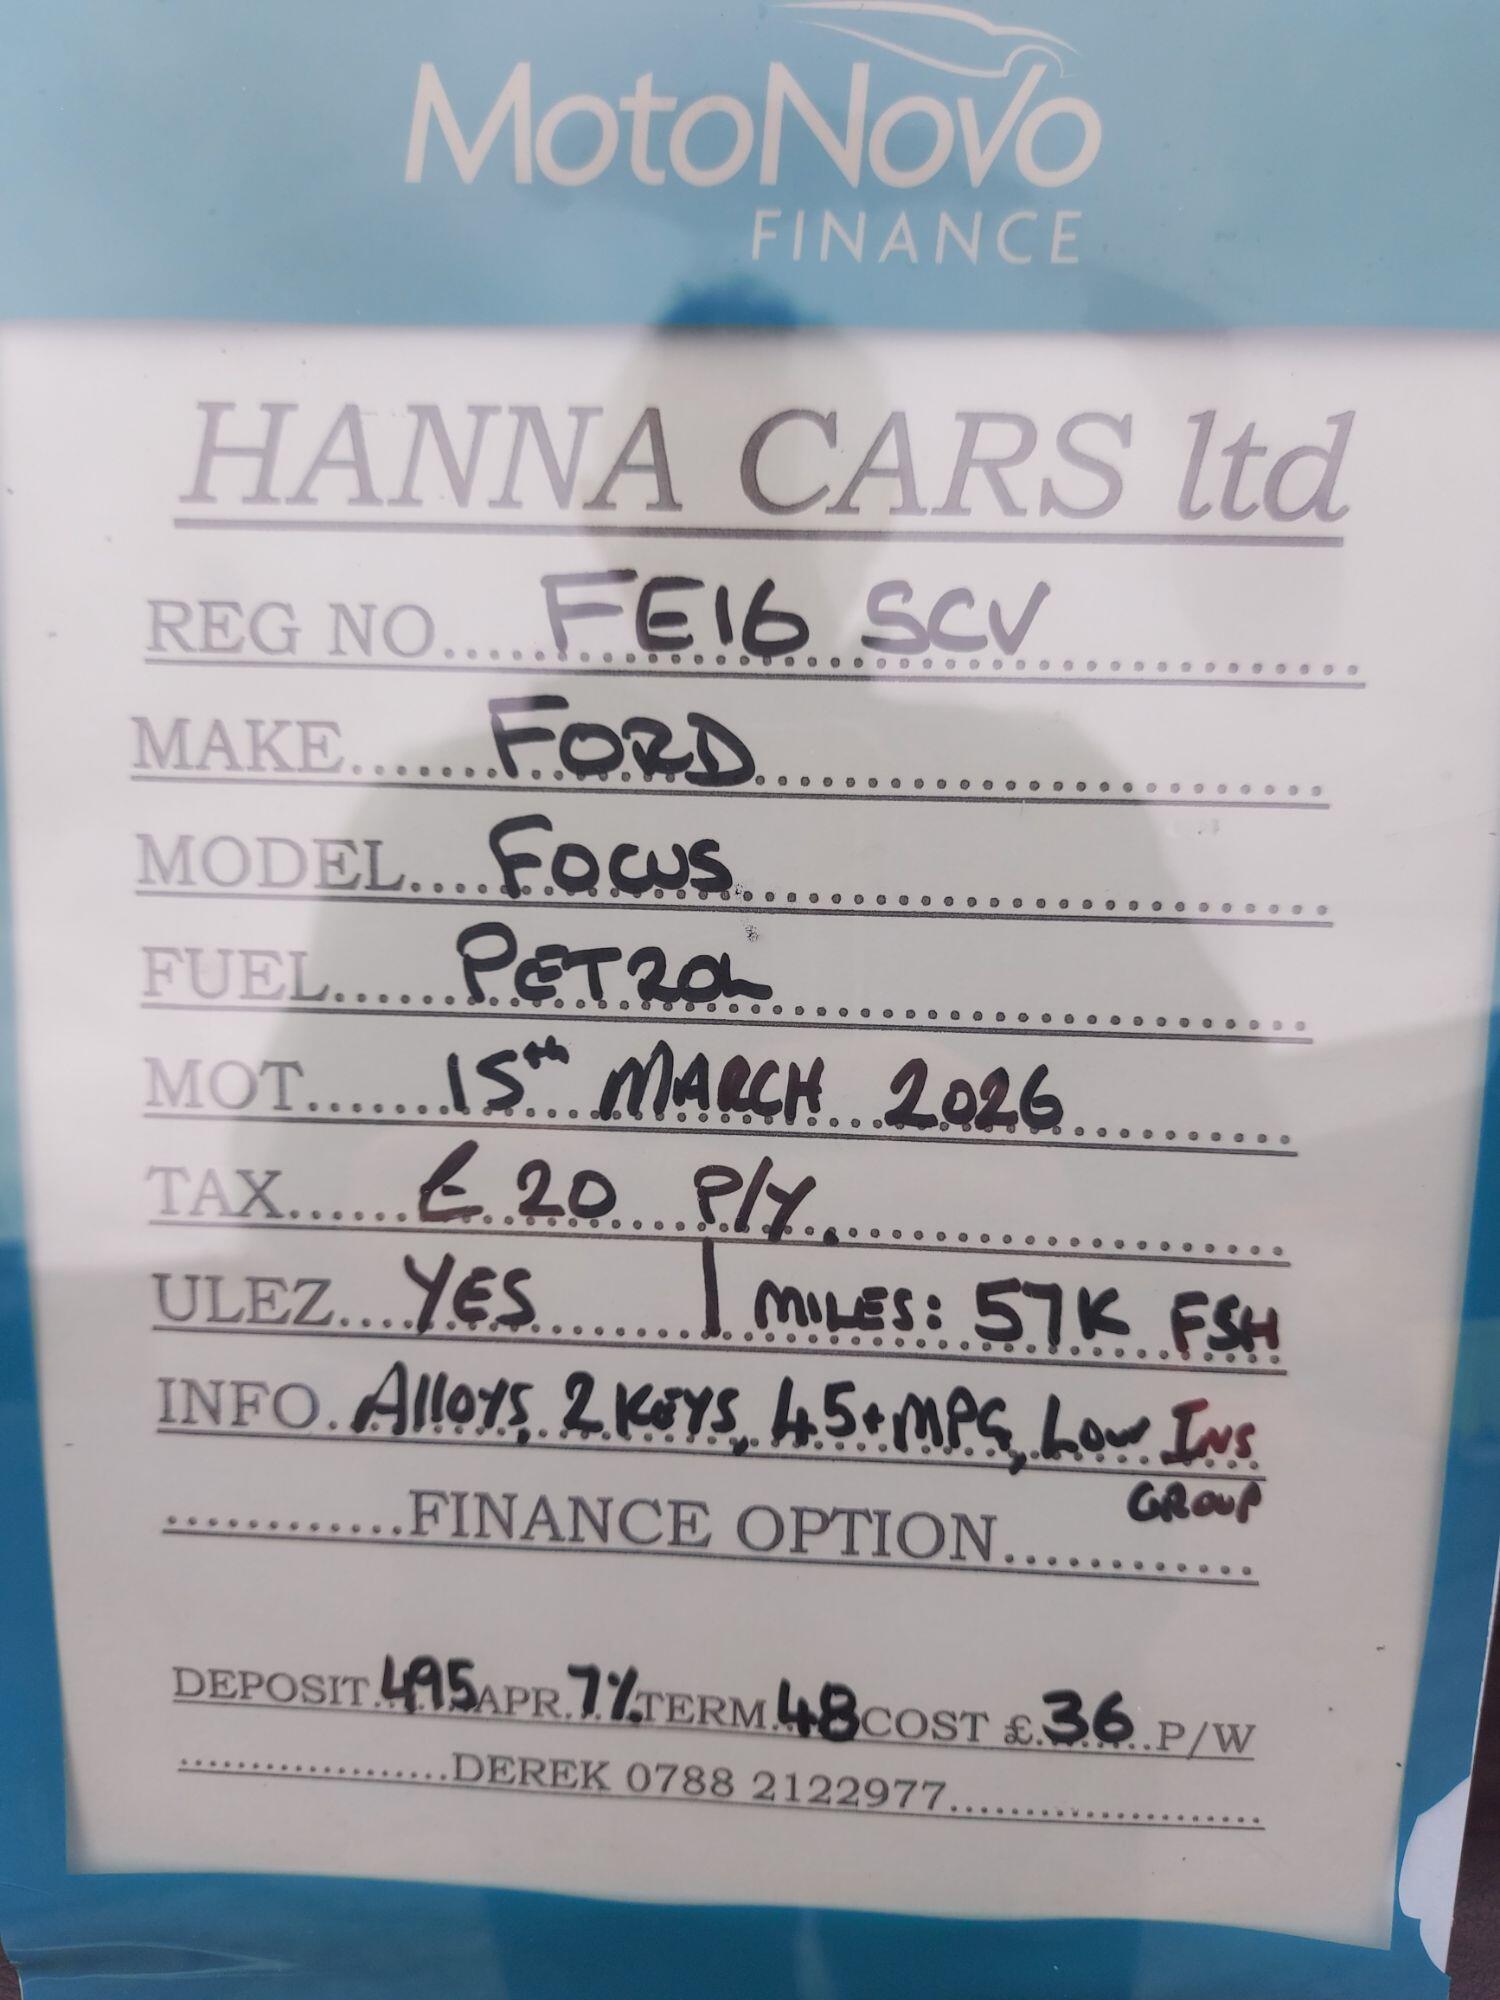 MotoNovo
FINANCE
HANNA CARS ltd
REG NO.....FE16 SCV.....
MAKE.....FORD.....
MODEL.....FOCUS.....
FUEL.....PETROL.....
MOT.....15th MARCH 2026.....
TAX.....£20 P/Y.....
ULEZ....YES.....| MILES: 57K FSH
INFO. Alloys, 2 KEYS, 45+MPG, Low INS
GROUP
............FINANCE OPTION............
DEPOSIT.495 APR.7% TERM.48 COST £.36..P/W
...................DEREK 0788 2122977...................